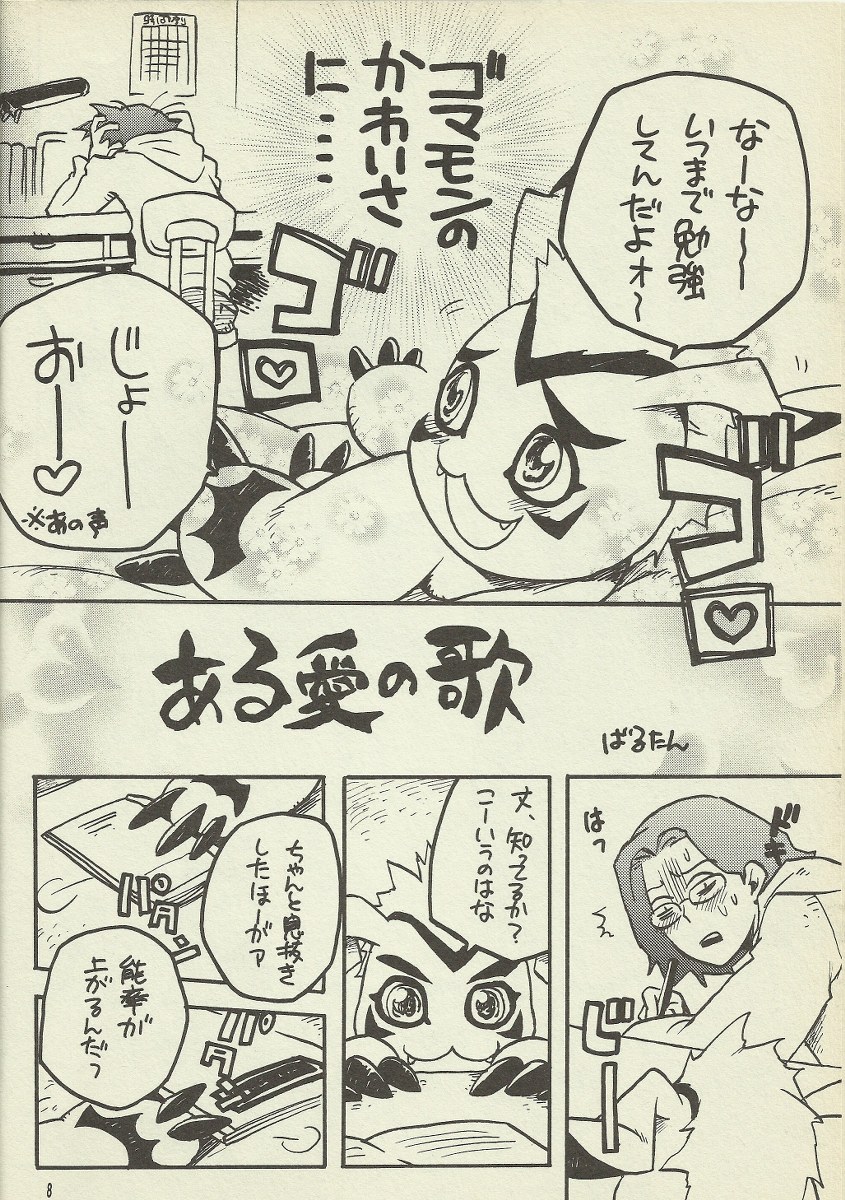 なーなー
いつまで勉強
してんだよォ〜
ゴマモンの
かわいさ
に……
ゴ
ゴ
じょー
おー♡
※あの声
ある愛の歌
ばるたん
はっ
ドキ
じー
丈、知ってるか?
こーいうのはな
ちゃんと息抜き
したほーがァ
パタン
能率が
上がるんだっ
パタ
8